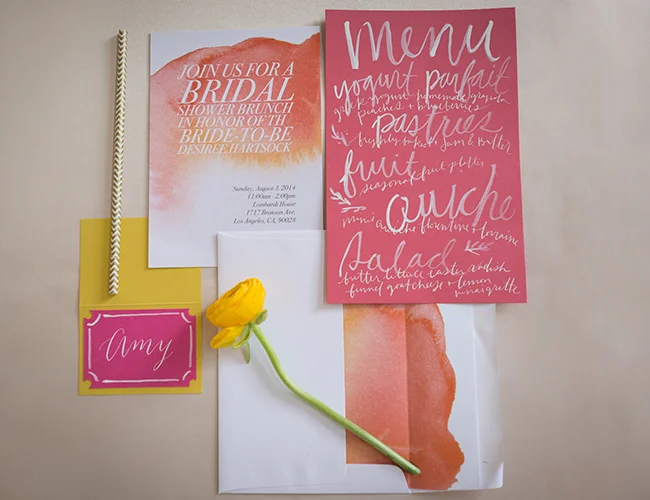 JOIN US FOR A
BRIDAL
SHOWER BRUNCH
IN HONOR OF TH
BRIDE-TO-BE
DESIREE HARTSOCK
Sunday, August 3, 2014
11:00am - 2:00pm
Lombardi House
Los Angeles, CA, 90028
menu
yogurt parfait
greek yogurt homemade granola
peaches + blueberries
pastries
freshly baked, jam & butter
fruit
seasonal fruit platter
Quiche
mini quiche florentine + lorraine
Salad
butter lettuce easter radish
fennel goat cheese + lemon
vinaigrette
amy